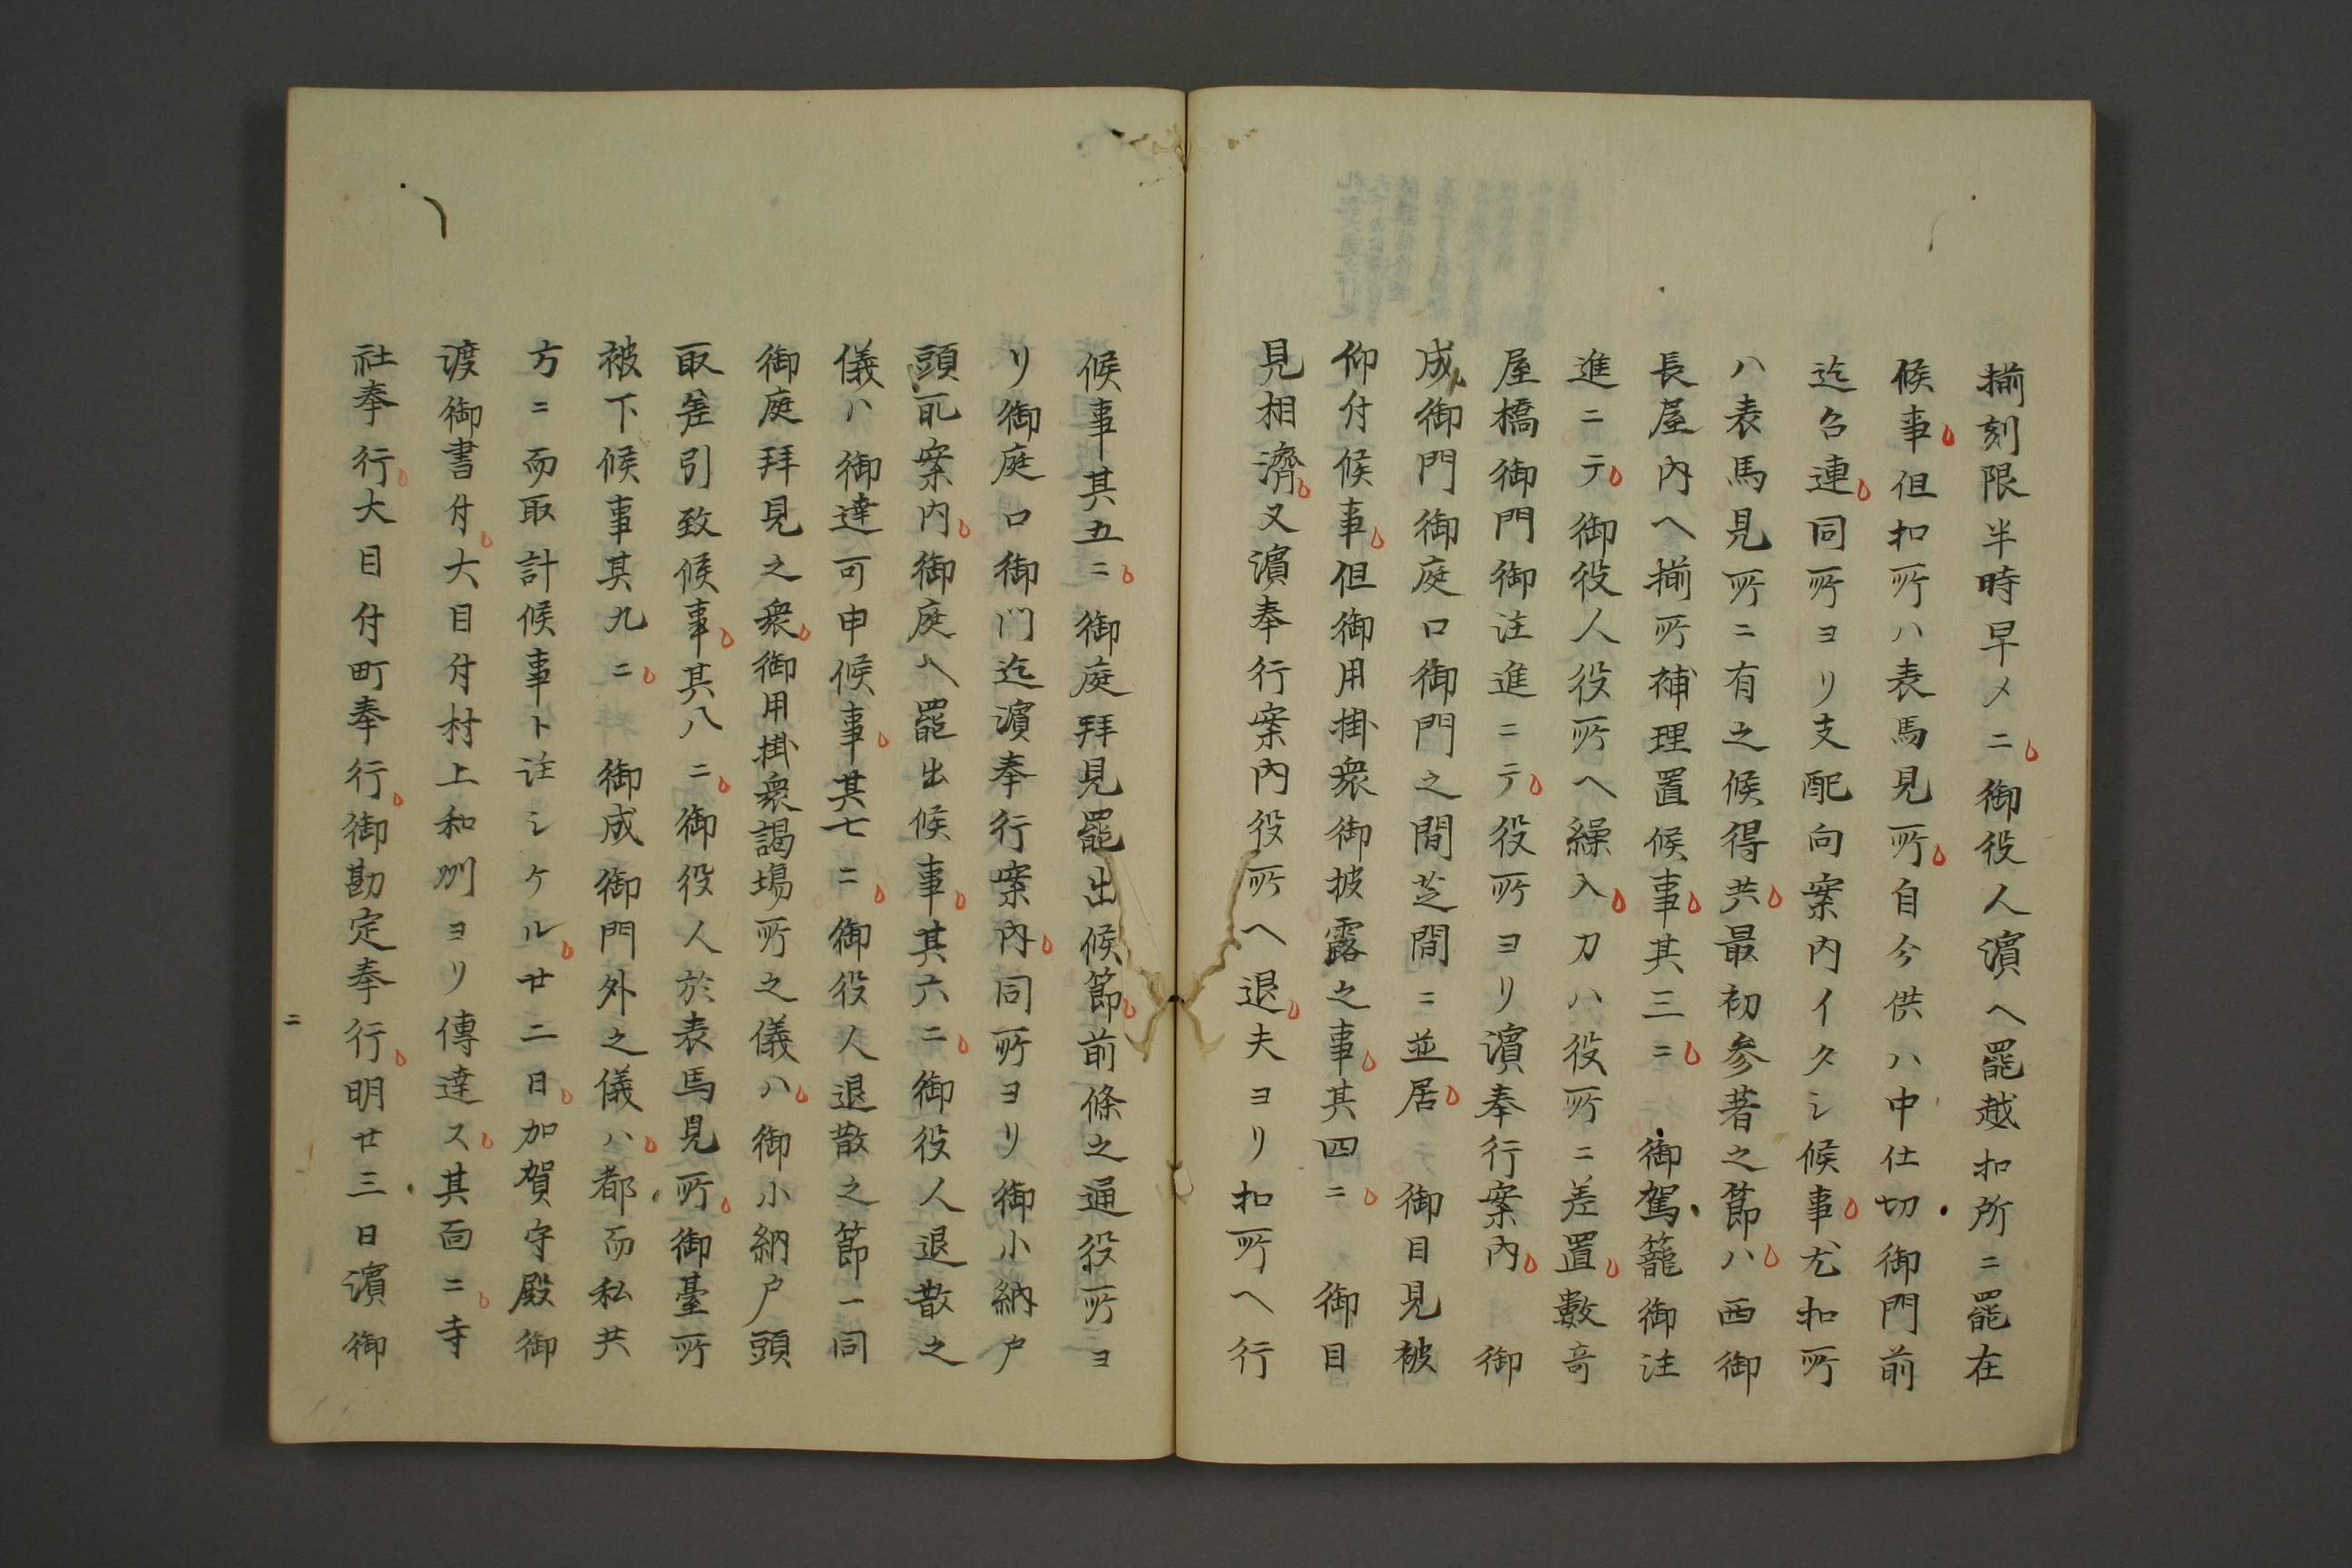 揃刻限半時早メニ御役人濵ヘ罷越扣所ニ罷在
候事但扣所ハ表馬見所自今供ハ中仕切御門前
迄召連同所ヨリ支配向案内イタシ候事尤扣所
ハ表馬見所ニ有之候得共最初参著之節ハ西御
長屋内ヘ揃所補理置候事其三ニ御駕籠御注
進ニテ御役人役所ヘ繰入刀ハ役所ニ差置數竒
屋橋御門御注進ニテ役所ヨリ濵奉行案内御
成御門御庭口御門之間芝間ニ並居御目見被
仰付候事但御用掛衆御披露之事其四ニ御目
見相濟又濵奉行案内役所ヘ退夫ヨリ扣所ヘ行
候事其五ニ御庭拜見罷出候節前條之通役所ヨ
リ御庭口御門迄濵奉行案内同所ヨリ御小納戸
頭取案内御庭ヘ罷出候事其六ニ御役人退散之
儀ハ御達可申候事其七ニ御役人退散之節一同
御庭拜見之衆御用掛衆謁場所之儀ハ御小納戸頭
取差引致候事其八ニ御役人於表馬見所御臺所
被下候事其九ニ御成御門外之儀ハ都而私共
方ニ而取計候事ト註シケル廿二日加賀守殿御
渡御書付大目付村上和州ヨリ傳達ス其面ニ寺
社奉行大目付町奉行御勘定奉行明廿三日濵御
二